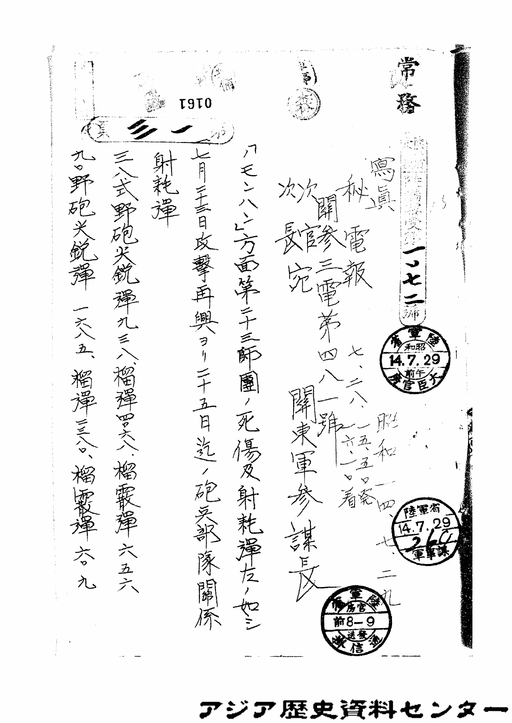 常務
0161
一三
一〇七二號
寫眞
秘電報
七、二八、一五、五〇發
一六、一〇着
昭和一四、七、二九
關參三電第四八一號
次官
次長宛
關東軍參謀長
「ノモンハン」方面第二十三師團ノ死傷及射耗彈左ノ如シ
七月二十三日攻擊再興ヨリ二十五日迄ノ砲兵部隊關係
射耗彈
三八式野砲尖銳彈九三八榴彈四六八、榴霰彈六五六
九〇野砲尖銳彈一六八五、榴彈三三八〇、榴霰彈六〇九
陸軍省
昭和
14.7.29
午前
大臣官房
陸軍省
14.7.29
軍事課
陸軍省
官房
前8-9
發送
通信
アジア歴史資料センター